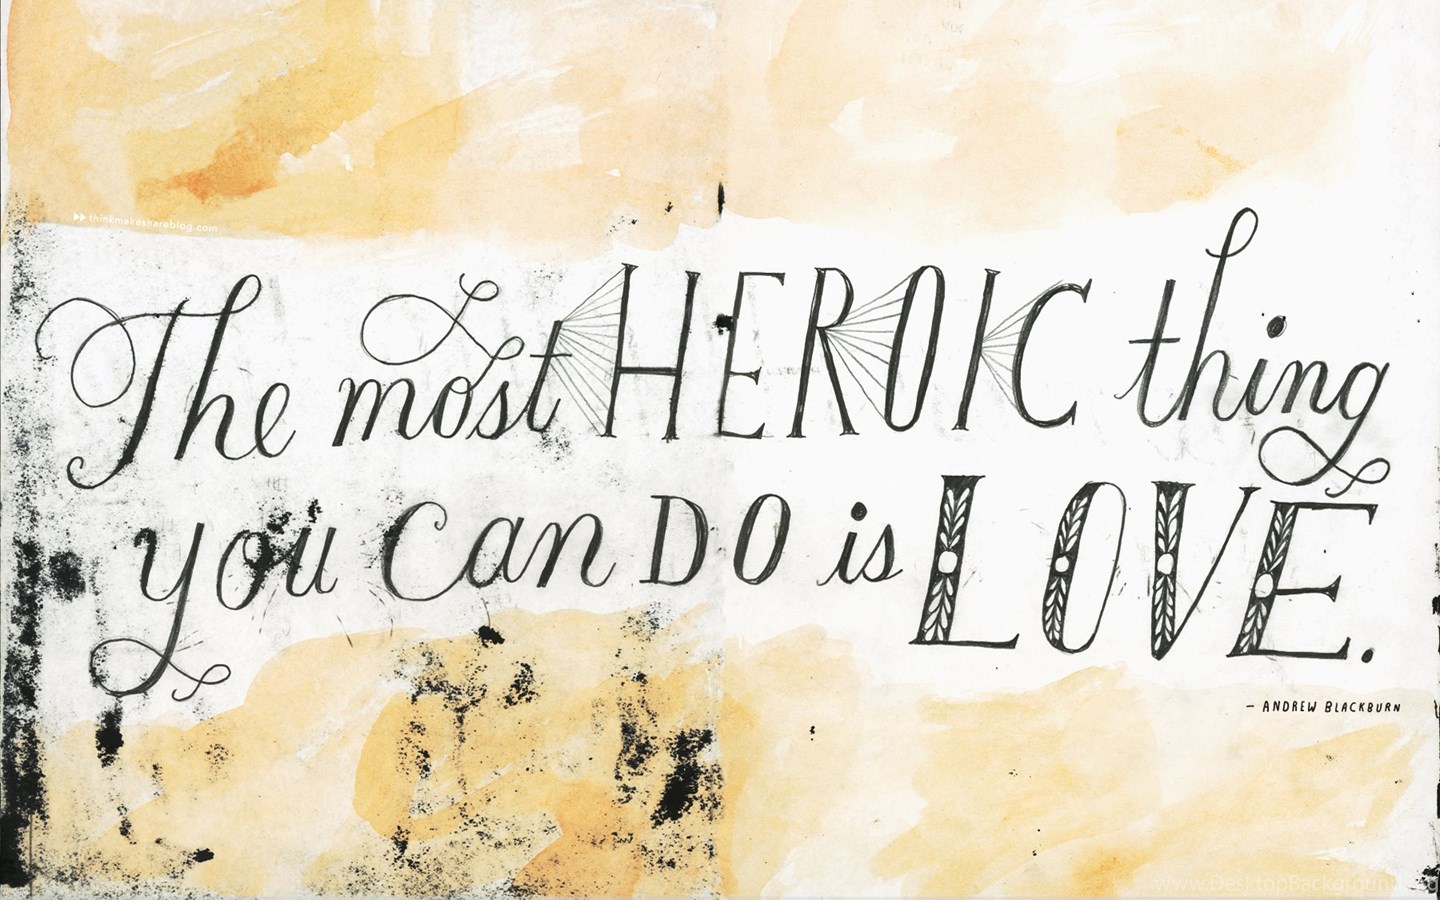 thinkmakeshareblog.com
The most HEROIC thing
you can DO is LOVE.
– ANDREW BLACKBURN